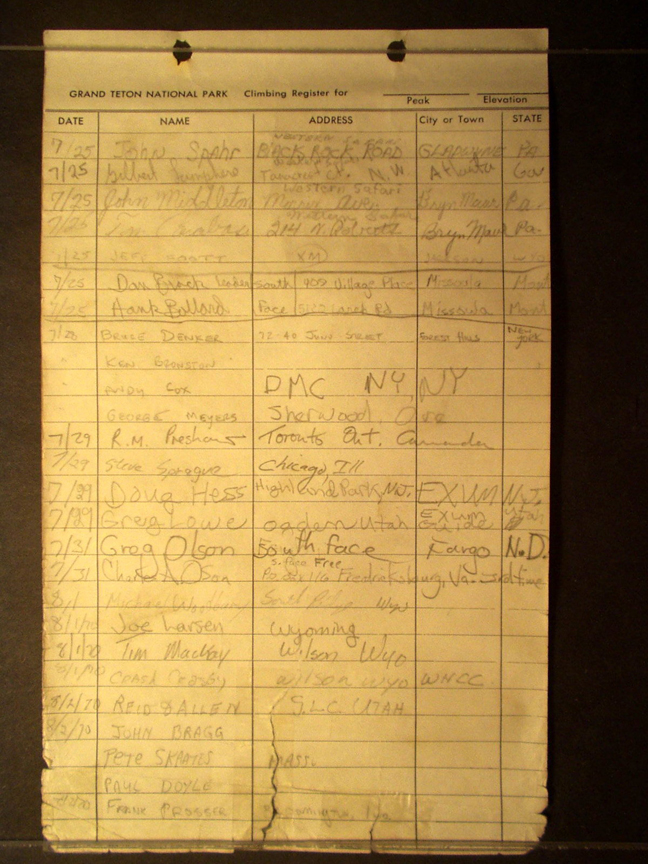 GRAND TETON NATIONAL PARK Climbing Register for
Peak Elevation
DATE NAME ADDRESS City or Town STATE
WESTERN SAFARI
7/25 JOHN SPAHR BLACK ROCK ROAD GLADWYNE PA
7/25 Gilbert Humphries N.W. Atlanta
Western Safari
7/25 John Middleton Morris Ave. Bryn Mawr Pa.
Western Safari
7/25 214 N. Bryn Mawr Pa.
7/25 JEFF FOOTT
7/25 Dan Brock leader south 900 Village Place Missoula Mont
7/25 Hank Pollard Face Rd Missoula Mont
7/28 BRUCE DENKER 72-40 JUNO STREET FOREST HILLS NEW YORK
KEN BRONSTON
ANDY COX DMC NY, NY
GEORGE MEYERS Sherwood, Ore
7/29 R.M. Toronto Ont. Cannada
7/29 Steve Sprague Chicago, Ill
7/29 Doug Hess Highland Park, N.J. EXUM N.J.
7/29 Greg Lowe Ogden Utah Exum Guide Utah
7/31 Greg Olson South face Fargo N.D.
S. Face Free
7/31 Charles A. Olson Fredricksburg, Va. 3rd time
8/1 Michael Wyo
8/1/70 Joe Larsen Wyoming
8/1/70 Tim Mackay Wilson Wyo
8/1/70 Wilson Wyo WHCC
8/2/70 REID & ALLEN S.L.C UTAH
8/2/70 JOHN BRAGG
PETE MASS.
PAUL DOYLE
FRANK PROSSER